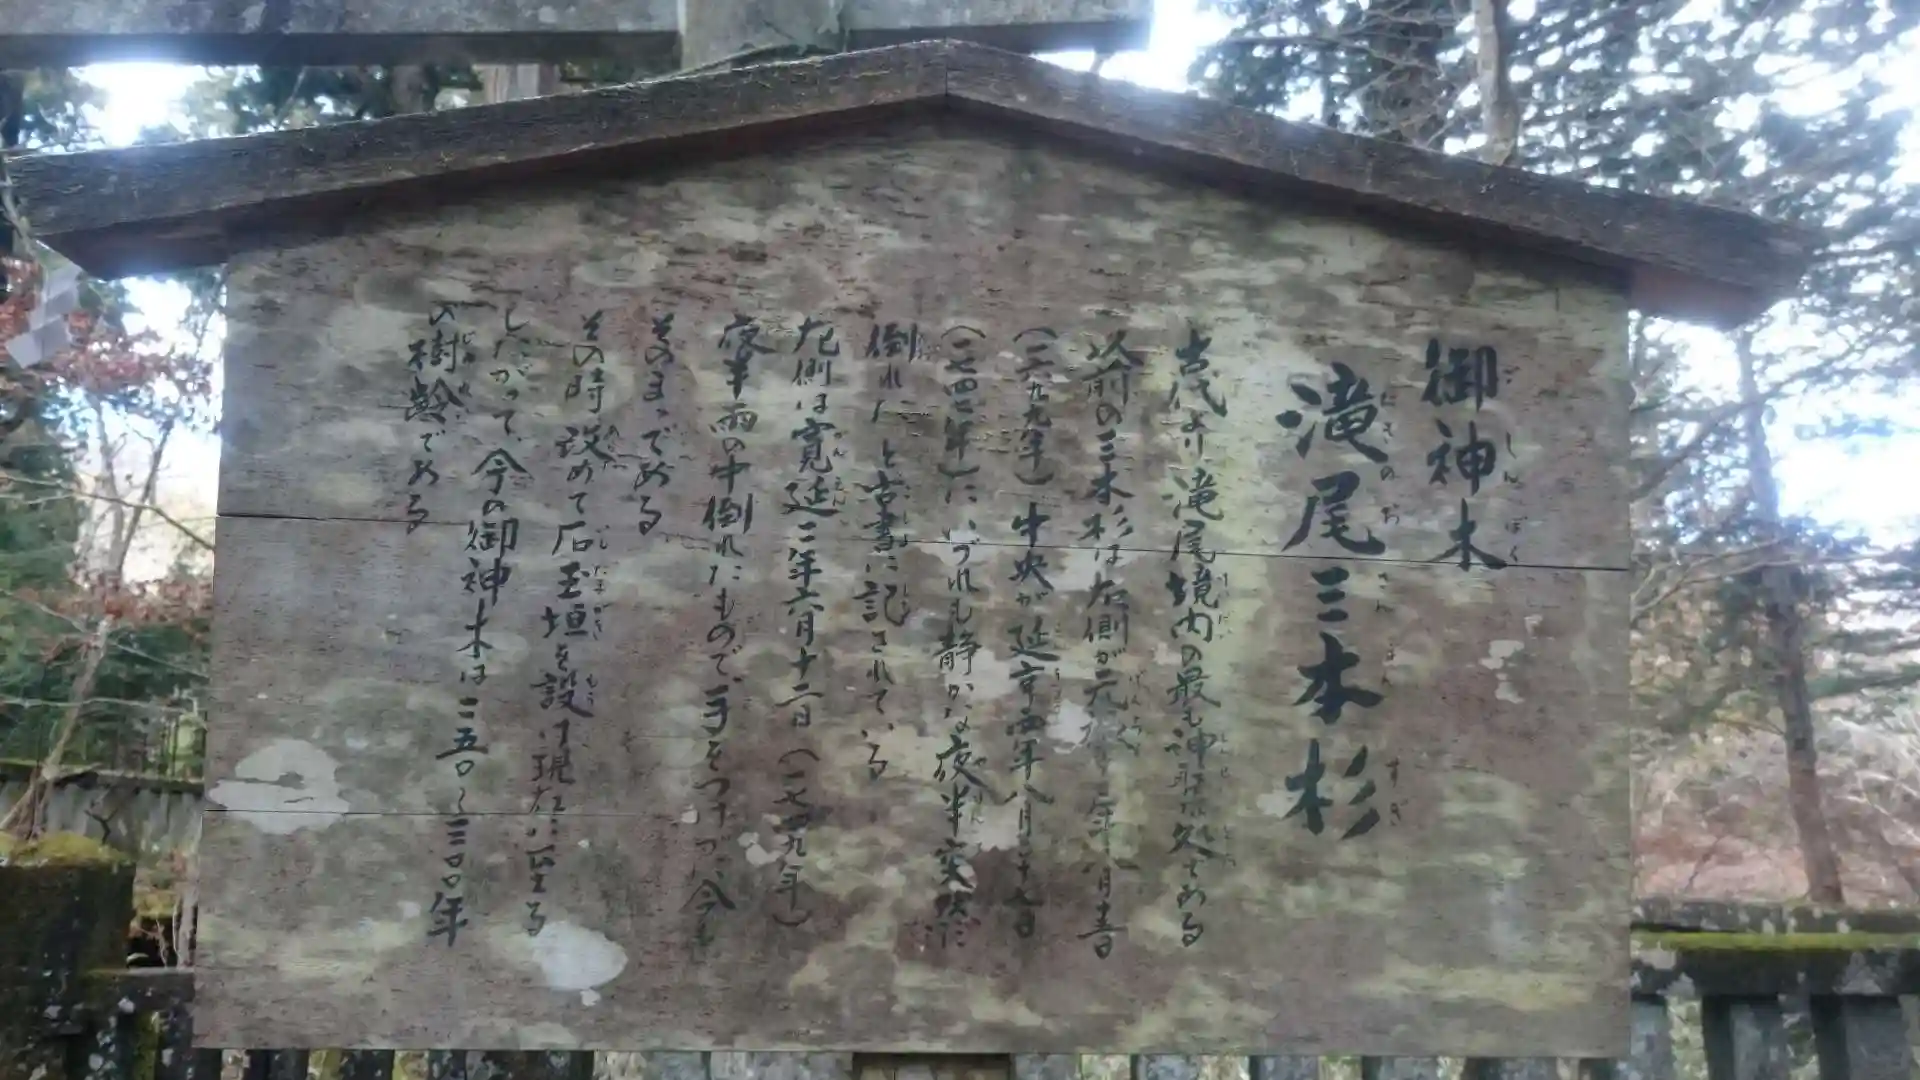 御神木
滝尾三本杉
古代より滝尾境内の最も神聖な処である
以前の三本杉は右側が元禄十二年八月
(一六九九年)中央が延享四年八月二十七日
(一七四七年)にいづれも静かな夜半突然だ
倒れたと古書に記されている
左側は寛延二年六月十二日(一七四九年)
夜半雨の中倒れたもので、手をつけづ、今も
そのまゝである
その時改めて石玉垣を設け現在に至る
したがって、今の御神木は二五〇〜三〇〇年
の樹齢である